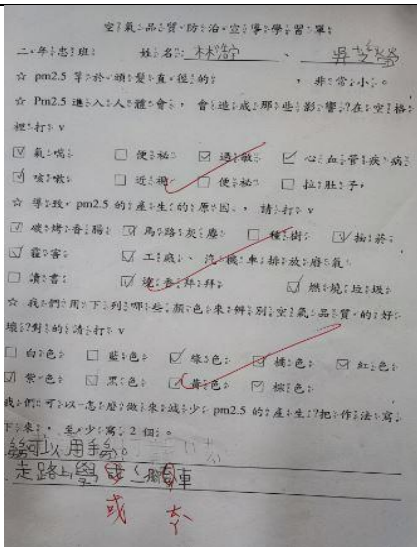 空氣品質防治宣導學習單
二年忠班 姓名: 林 、 吳
☆ pm2.5 等於頭髮直徑的 , 非常小。
☆ Pm2.5 進入人體會, 會造成那些影響?在空格
裡打 v
☑ 氣喘 □ 便祕 ☑ 過敏 ☑ 心血管疾病
☑ 咳嗽 □ 近視 □ 便祕 □ 拉肚子
☆ 導致 pm2.5 的產生的原因, 請打 v
☑ 碳烤香腸 ☑ 馬路灰塵 □ 種樹 ☑ 抽菸
☑ 霾害 ☑ 工廠、汽機車排放廢氣
□ 讀書 ☑ 燒香拜拜 ☑ 燃燒垃圾
☆ 我們用下列哪些顏色來辨別空氣品質的好
壞?對的請打 v
□ 白色 □ 藍色 ☑ 綠色 ☑ 橘色 ☑ 紅色
☑ 紫色 □ 黑色 ☑ 黃色 ☑ 棕色
我們可以怎麼做來減少 pm2.5 的產生?把作法寫
下來, 至少寫 2 個。
可以用手
走路上學 車
或